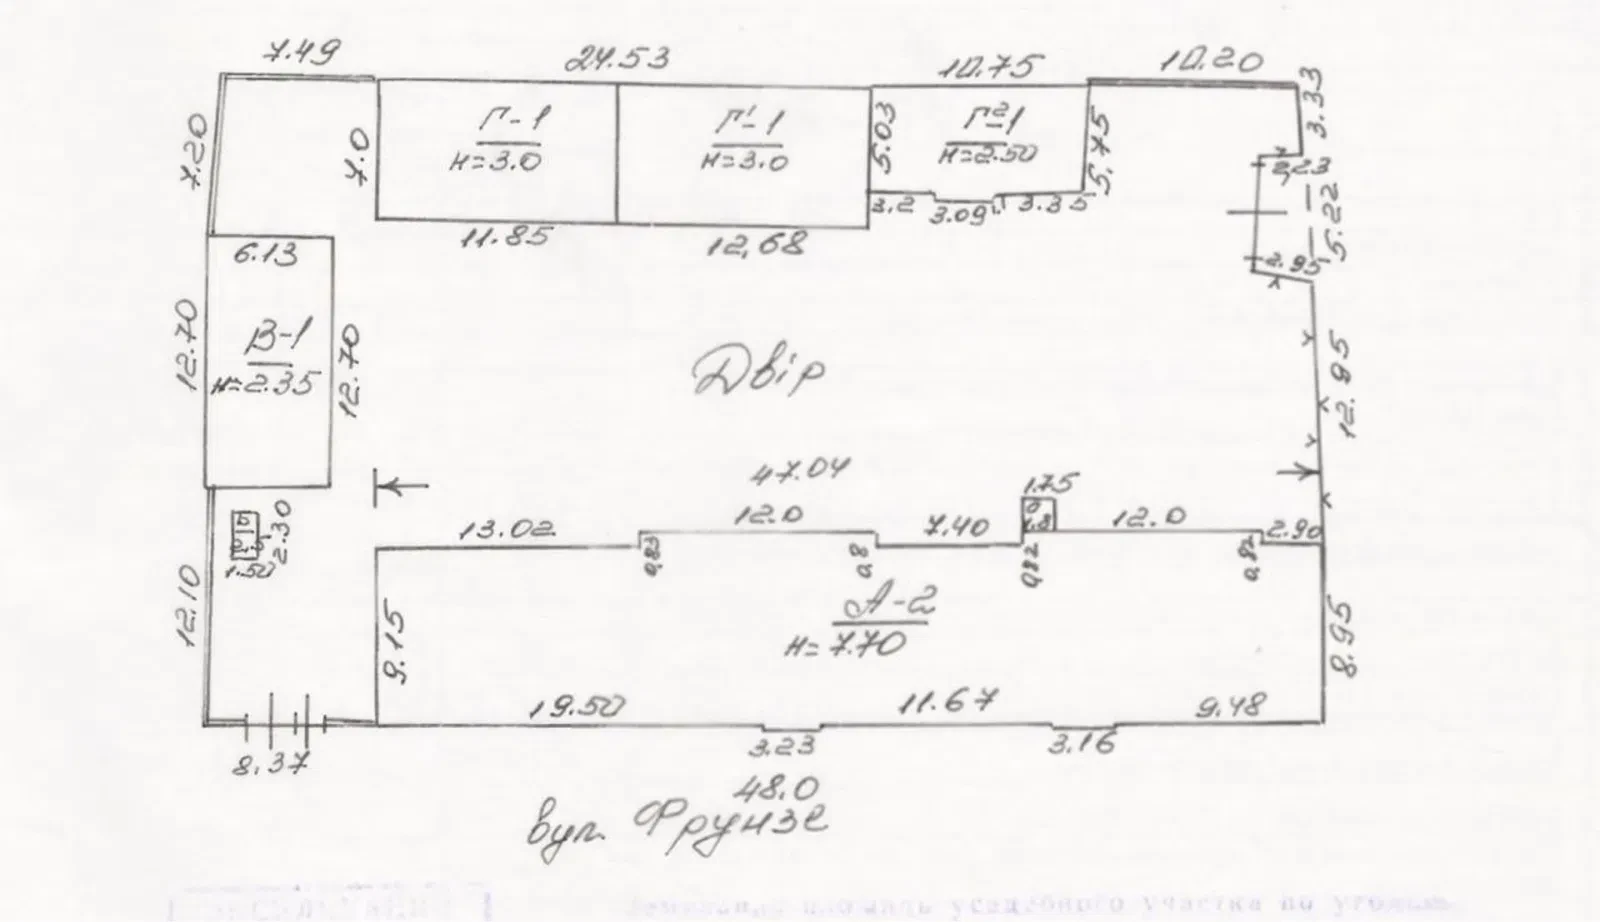 7.49 24.53 10.75 10.20
3.33
7.20 7.0 Г-1 Г'-1 5.03 Г²-1 5.75
н=3.0 н=3.0 н=2.50
2,23
3.2 3.09 3.35
5.22
6.13 11.85 12,68
2.95
12.70 В-1 12.70
н=2.35
Двір
12.95
47.04
1.75
2.30 13.02 12.0 7.40 1.8 12.0 2.90
1.50 0,83 0,8 0,82 0,82
12.10 А-2
н=7.70
9.15 8.95
19.50 11.67 9.48
8.37 3.23 3.16
48.0
вул. Фрунзе
земельна площадь усадебного участка по угодьям